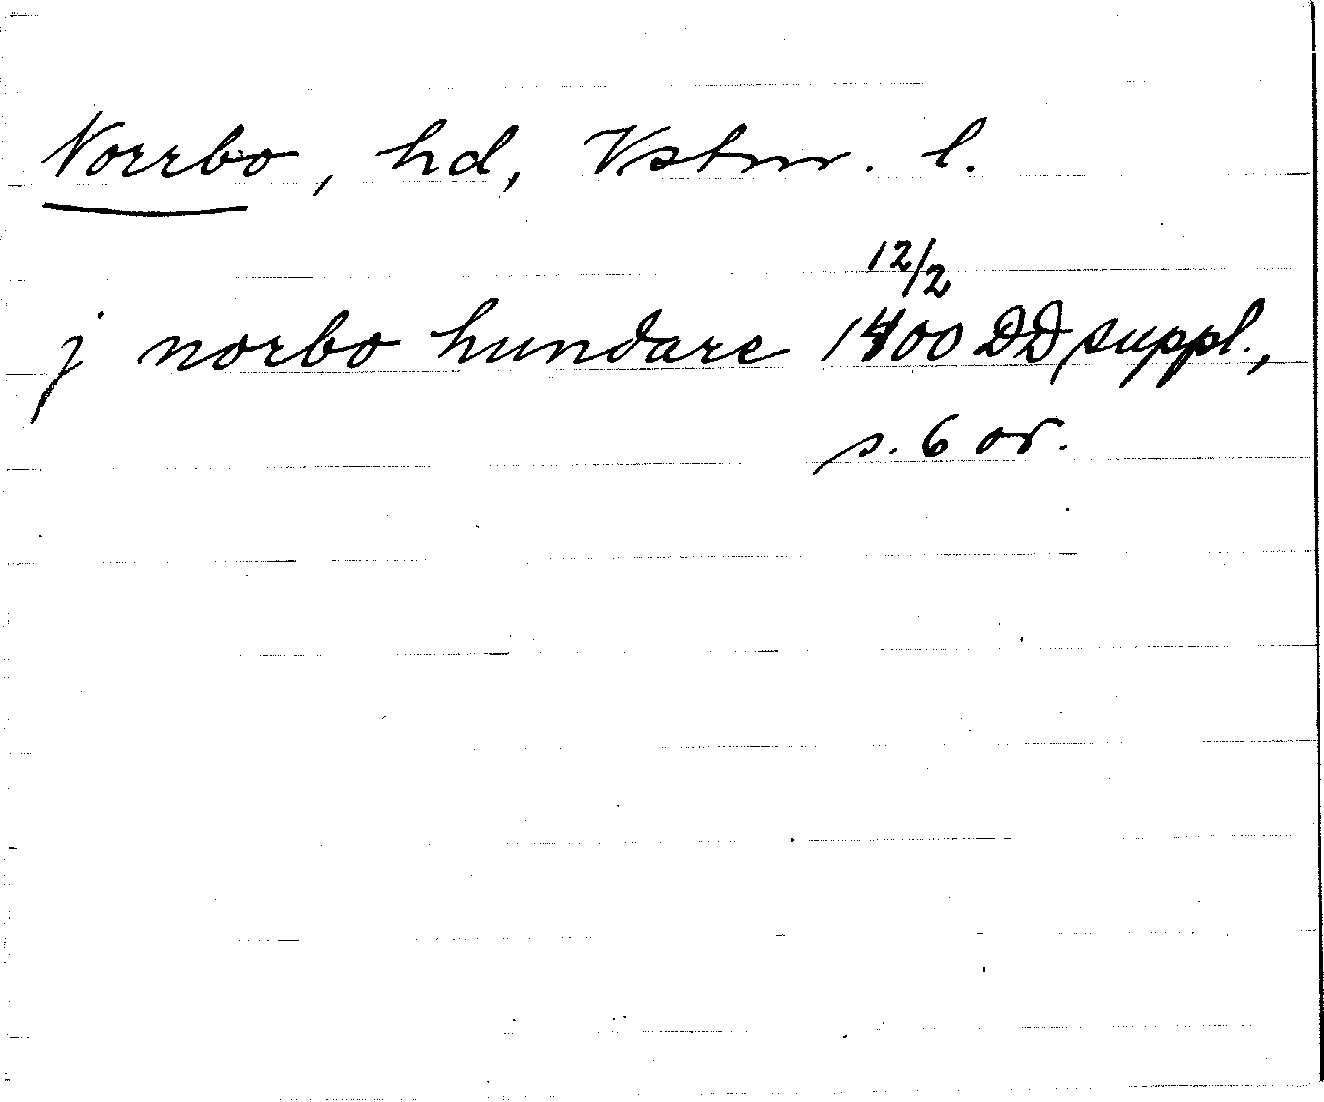 Norrbo, hd, Vstm. l.
12/2
j norbo hundare 1400 DD suppl.,
s. 6 or.